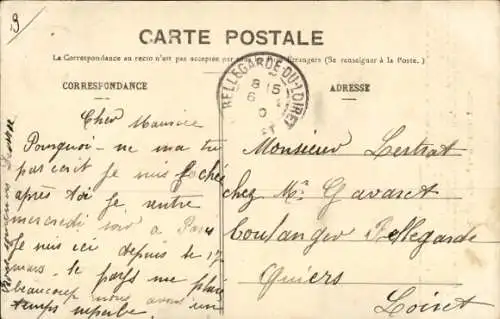 CARTE POSTALE
La Correspondance au recto n'est pas acceptée par Étrangers (Se renseigner à la Poste.)
CORRESPONDANCE
ADRESSE
BELLEGARDE-DU-LOIRET
8 15
6
Cher Maurice
Pourquoi - ne ma tu
pas écrit Je suis fachée
après toi Je rentre
mercredi soir à Paris
Je suis ici depuis le 17
mars. le pays me plais
beaucoup nous avons un
temps superbe
Monsieur Lestrat
chez Mr Gavaret
boulanger Bellegarde
Quiers
Loiret